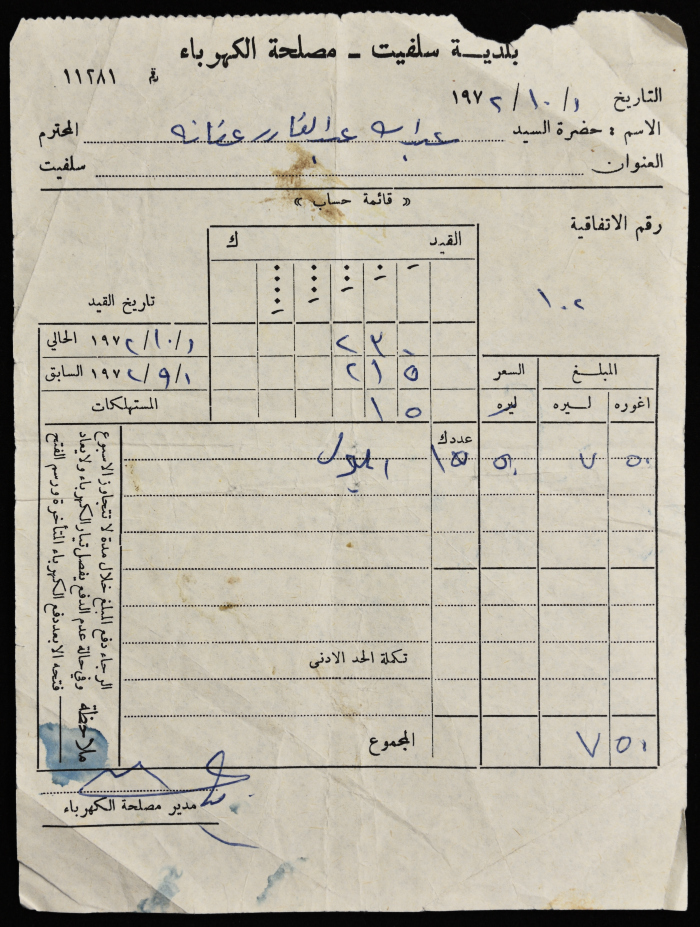 بلديـــة سلفيت ـ مصلحة الكهرباء
رقم ١١٢٨١
التاريخ ١ / ١٠ / ١٩٧٢
الاسم : حضرة السيد عبدالله عبدالقادر عفانه المحترم
العنوان سلفيت
« قائمة حساب »
رقم الاتفاقية
١٠٢
القيد ك
١ ١٠ ١٠٠ ١٠٠٠ ١٠٠٠٠
تاريخ القيد
٢٣٠ ١ / ١٠ / ١٩٧٢ الحالي
٢١٥ ١ / ٩ / ١٩٧٢ السابق
١٥ المستهلكات
المبلــغ السعر
اغوره ليــره ليره
عددك
٥٠ ٧ ٥٠ ١٥ ايلول
تكملة الحد الادنى
المجموع
٥٠ ٧
ملاحظة
الرجاء دفع المبلغ خلال مدة لا تتجاوز الاسبوع
وفي حالة عدم الدفع يفصل تيار الكهرباء ولا يعاد
فتحه الا بعد دفع الكهرباء المتأخرة ورسم الفتح
مدير مصلحة الكهرباء